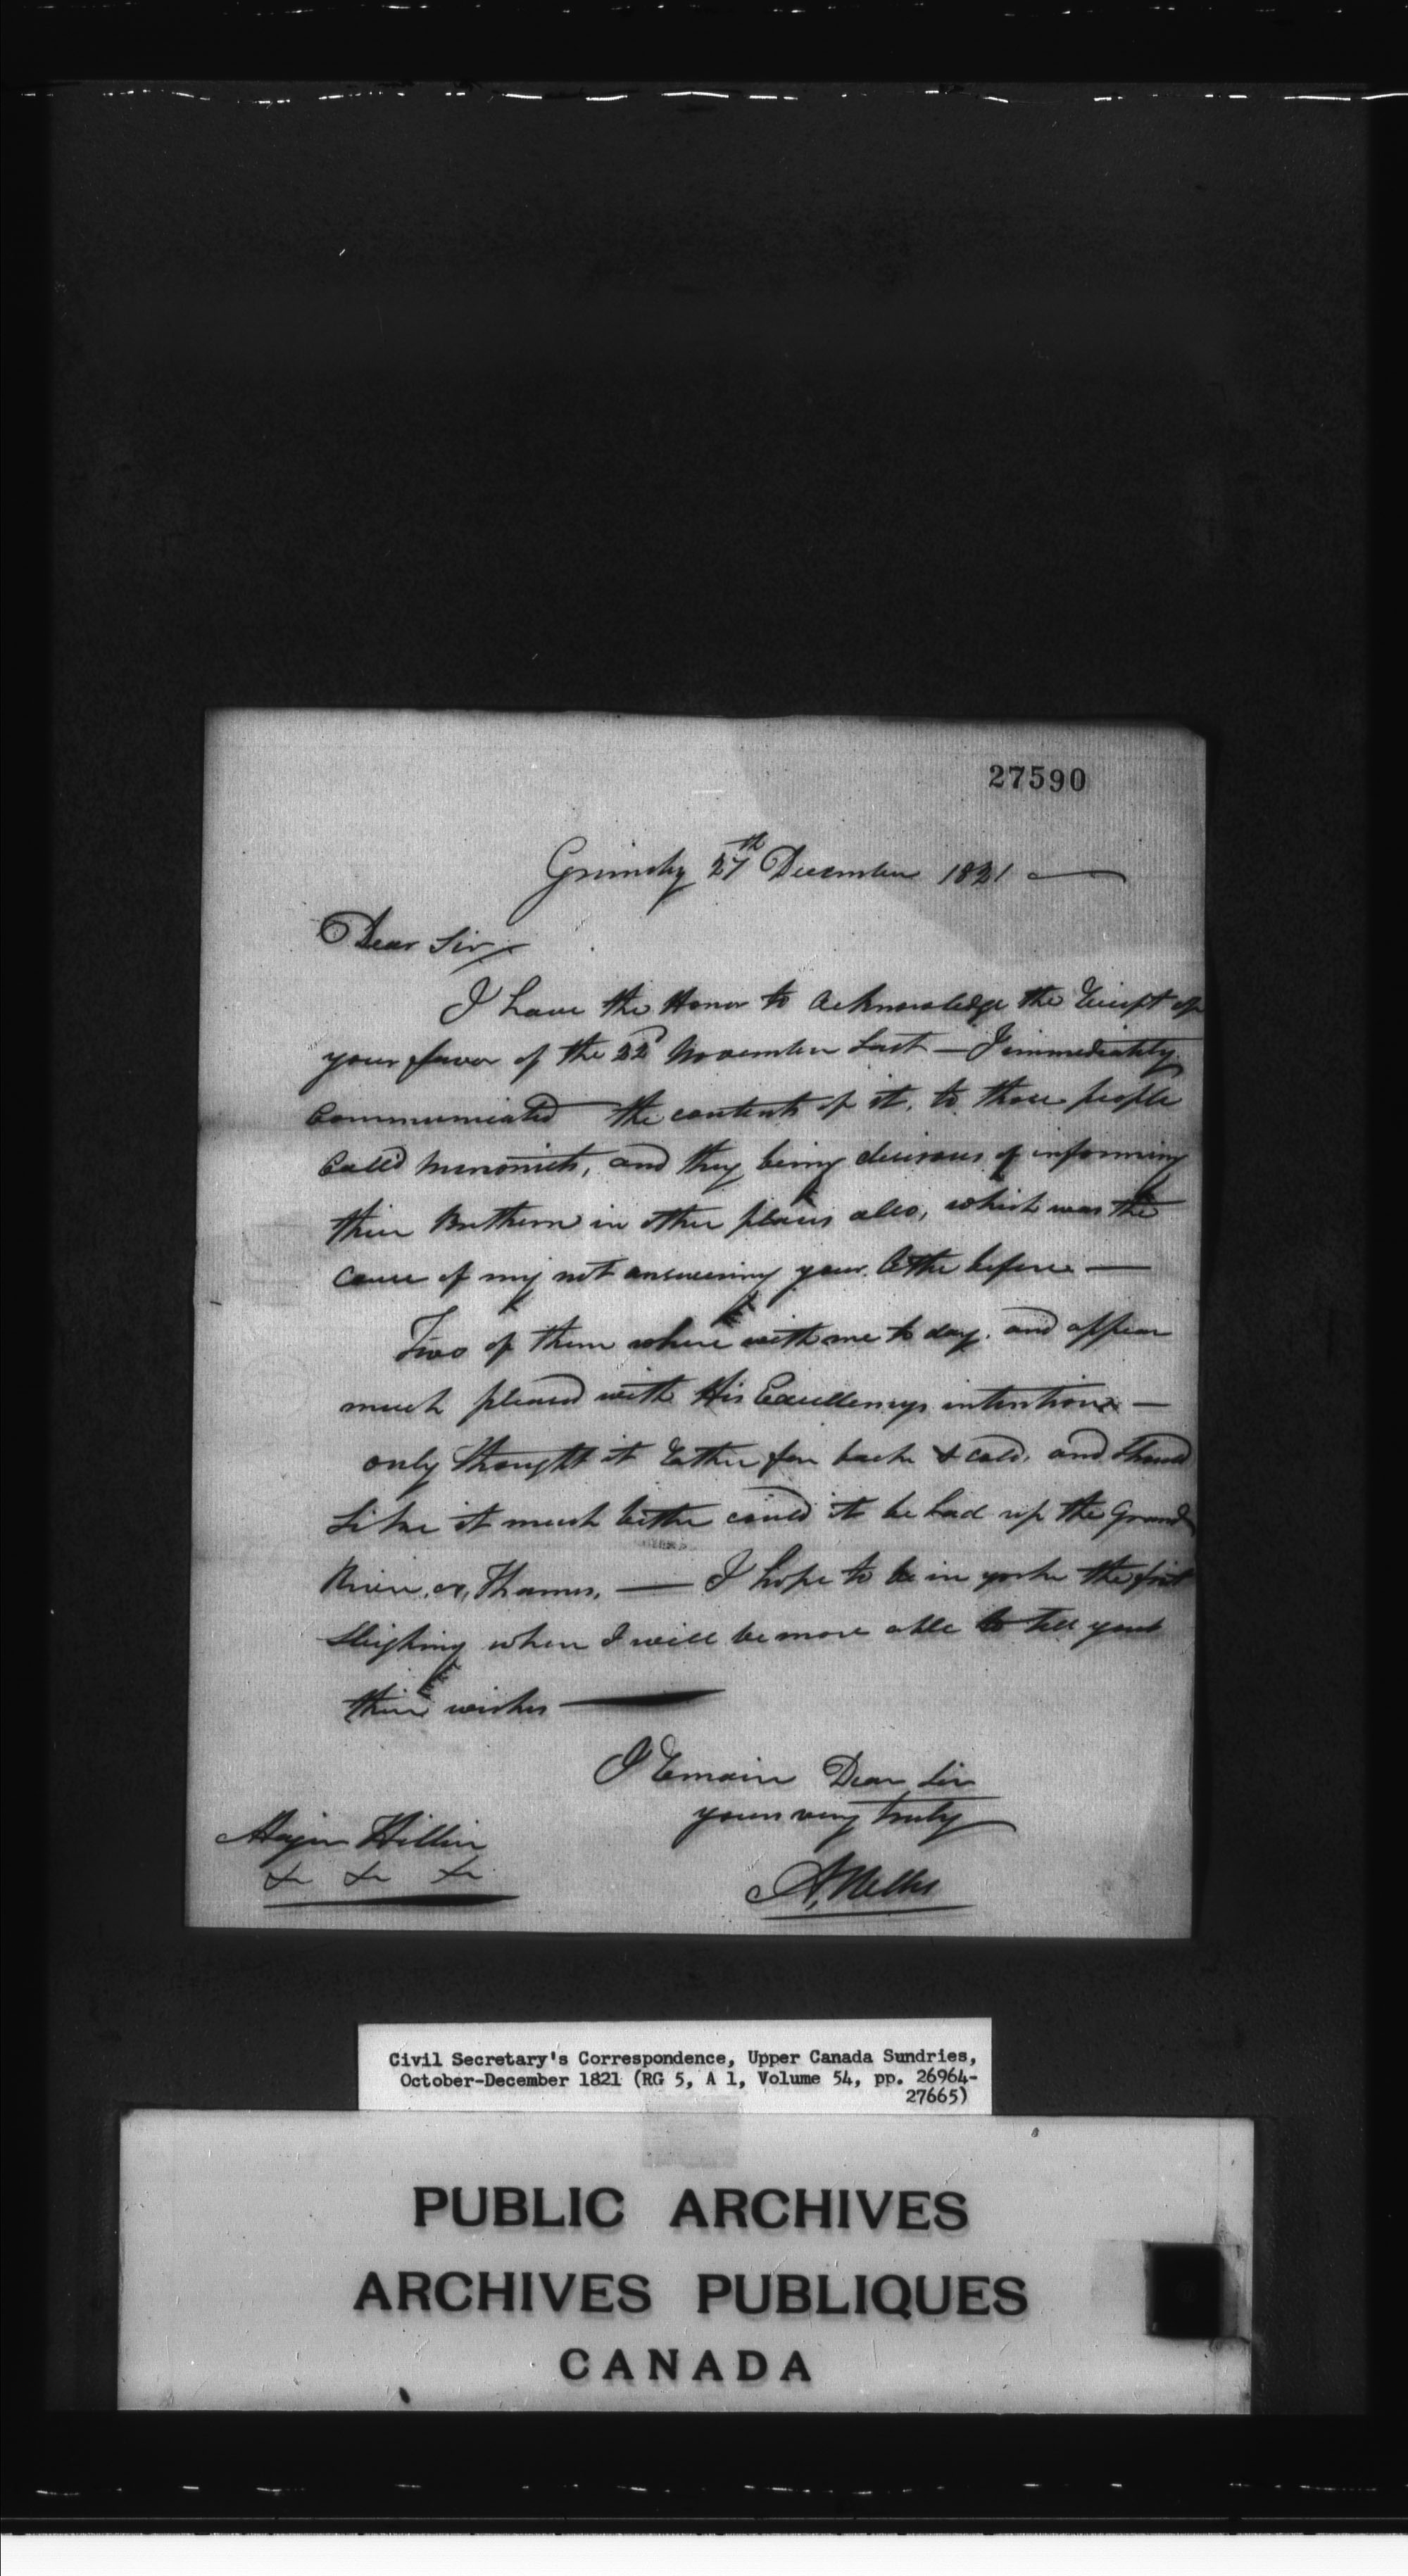 27590
Grimsby 27th December 1821 —
Dear Sir
I have the Honor to acknowledge the Receipt of
your favor of the 22d November Last — I immediately
communicated the contents of it, to those people
Called Menonists, and they being desirous of informing
their Brethern in other places also, which was the
cause of my not answering your letter before —
Two of them where with me to day. and appear
much pleased with His Excellencys intentions —
only thought it Rather far back & cold, and should
Like it much better could it be had up the Grand
River, or, Thames, — I hope to be in york the first
Sleighing when I will be more able to tell you
their wishes —
I Remain Dear Sir
yours very truly
A, Nelles
Major Hillier
&c &c &c
Civil Secretary's Correspondence, Upper Canada Sundries,
October-December 1821 (RG 5, A 1, Volume 54, pp. 26964-
27665)
PUBLIC ARCHIVES
ARCHIVES PUBLIQUES
CANADA